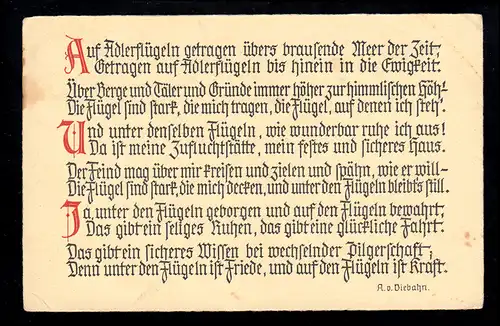 Auf Adlerflügeln getragen übers brausende Meer der Zeit,
Getragen auf Adlerflügeln bis hinein in die Ewigkeit.
Über Berge und Täler und Gründe immer höher zur himmlischen Höh'
Die Flügel sind stark, die mich tragen, die Flügel, auf denen ich steh'.
Und unter denselben Flügeln, wie wunderbar ruhe ich aus!
Da ist meine Zufluchtstätte, mein festes und sicheres Haus.
Der Feind mag über mir kreisen und zielen und spähn, wie er will-
Die Flügel sind stark, die mich decken, und unter den Flügeln bleibt's still.
Ja, unter den Flügeln geborgen und auf den Flügeln bewahrt,
Das gibt ein seliges Ruhen, das gibt eine glückliche Fahrt.
Das gibt ein sicheres Wissen bei wechselnder Pilgerschaft;
Denn unter den Flügeln ist Friede, und auf den Flügeln ist Kraft.
A. v. Viebahn.